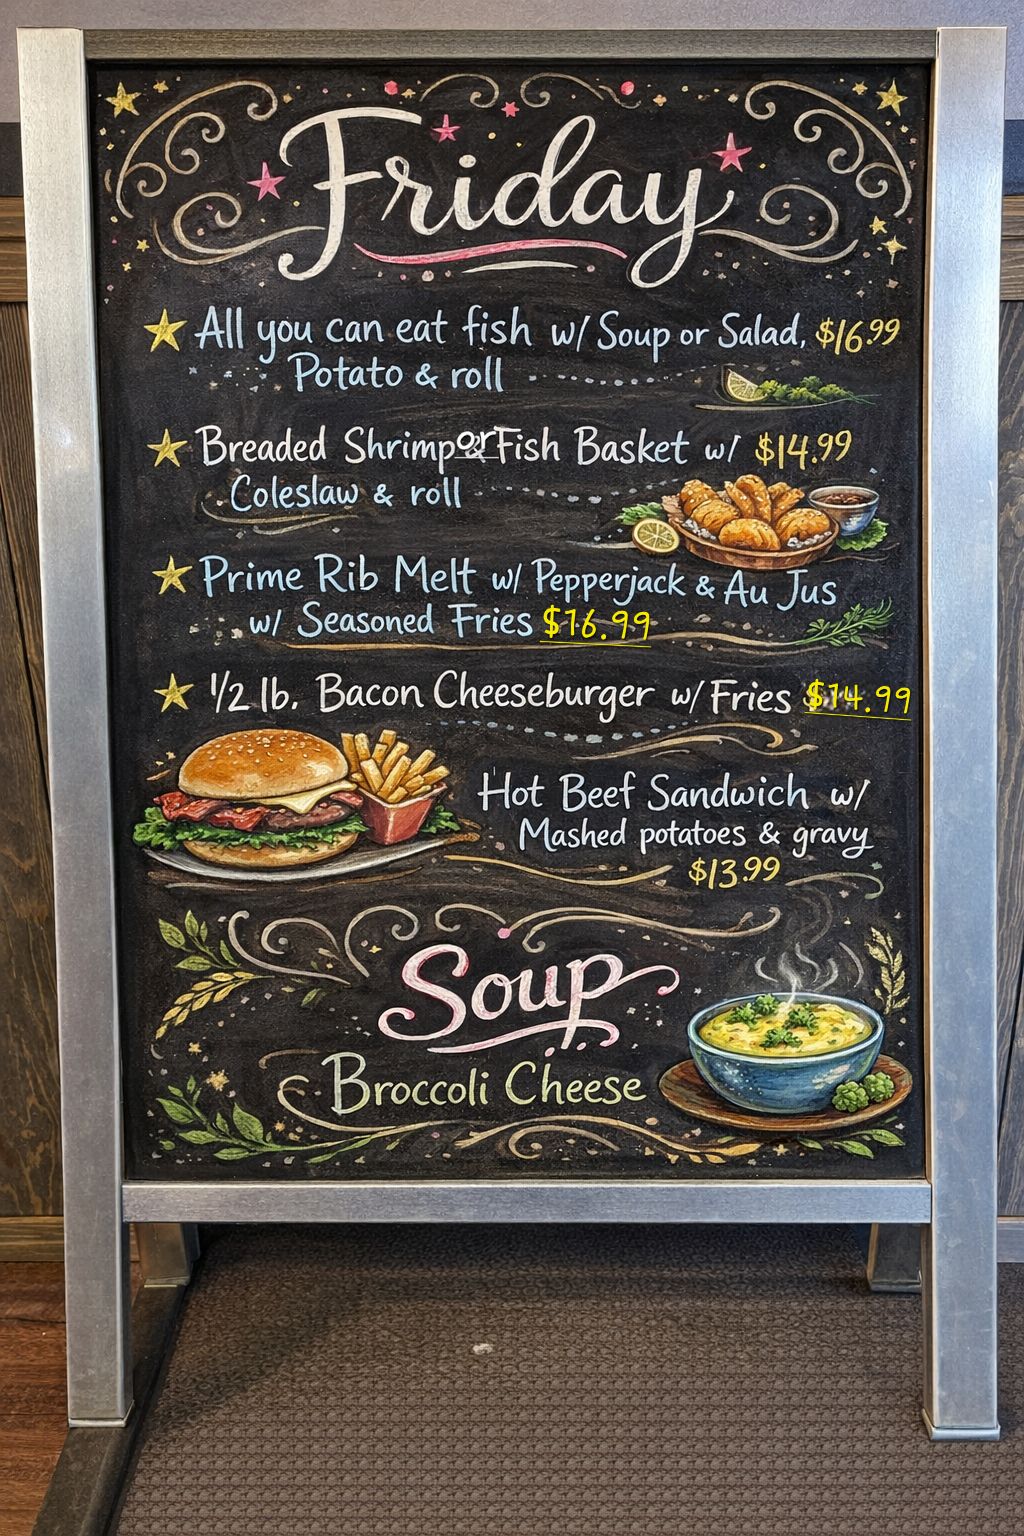 Friday
All you can eat fish w/ Soup or Salad, $16.99
Potato & roll
Breaded Shrimp or Fish Basket w/ $14.99
Coleslaw & roll
Prime Rib Melt w/ Pepperjack & Au Jus
w/ Seasoned Fries $16.99
1/2 lb. Bacon Cheeseburger w/ Fries $14.99
Hot Beef Sandwich w/
Mashed potatoes & gravy
$13.99
Soup
Broccoli Cheese